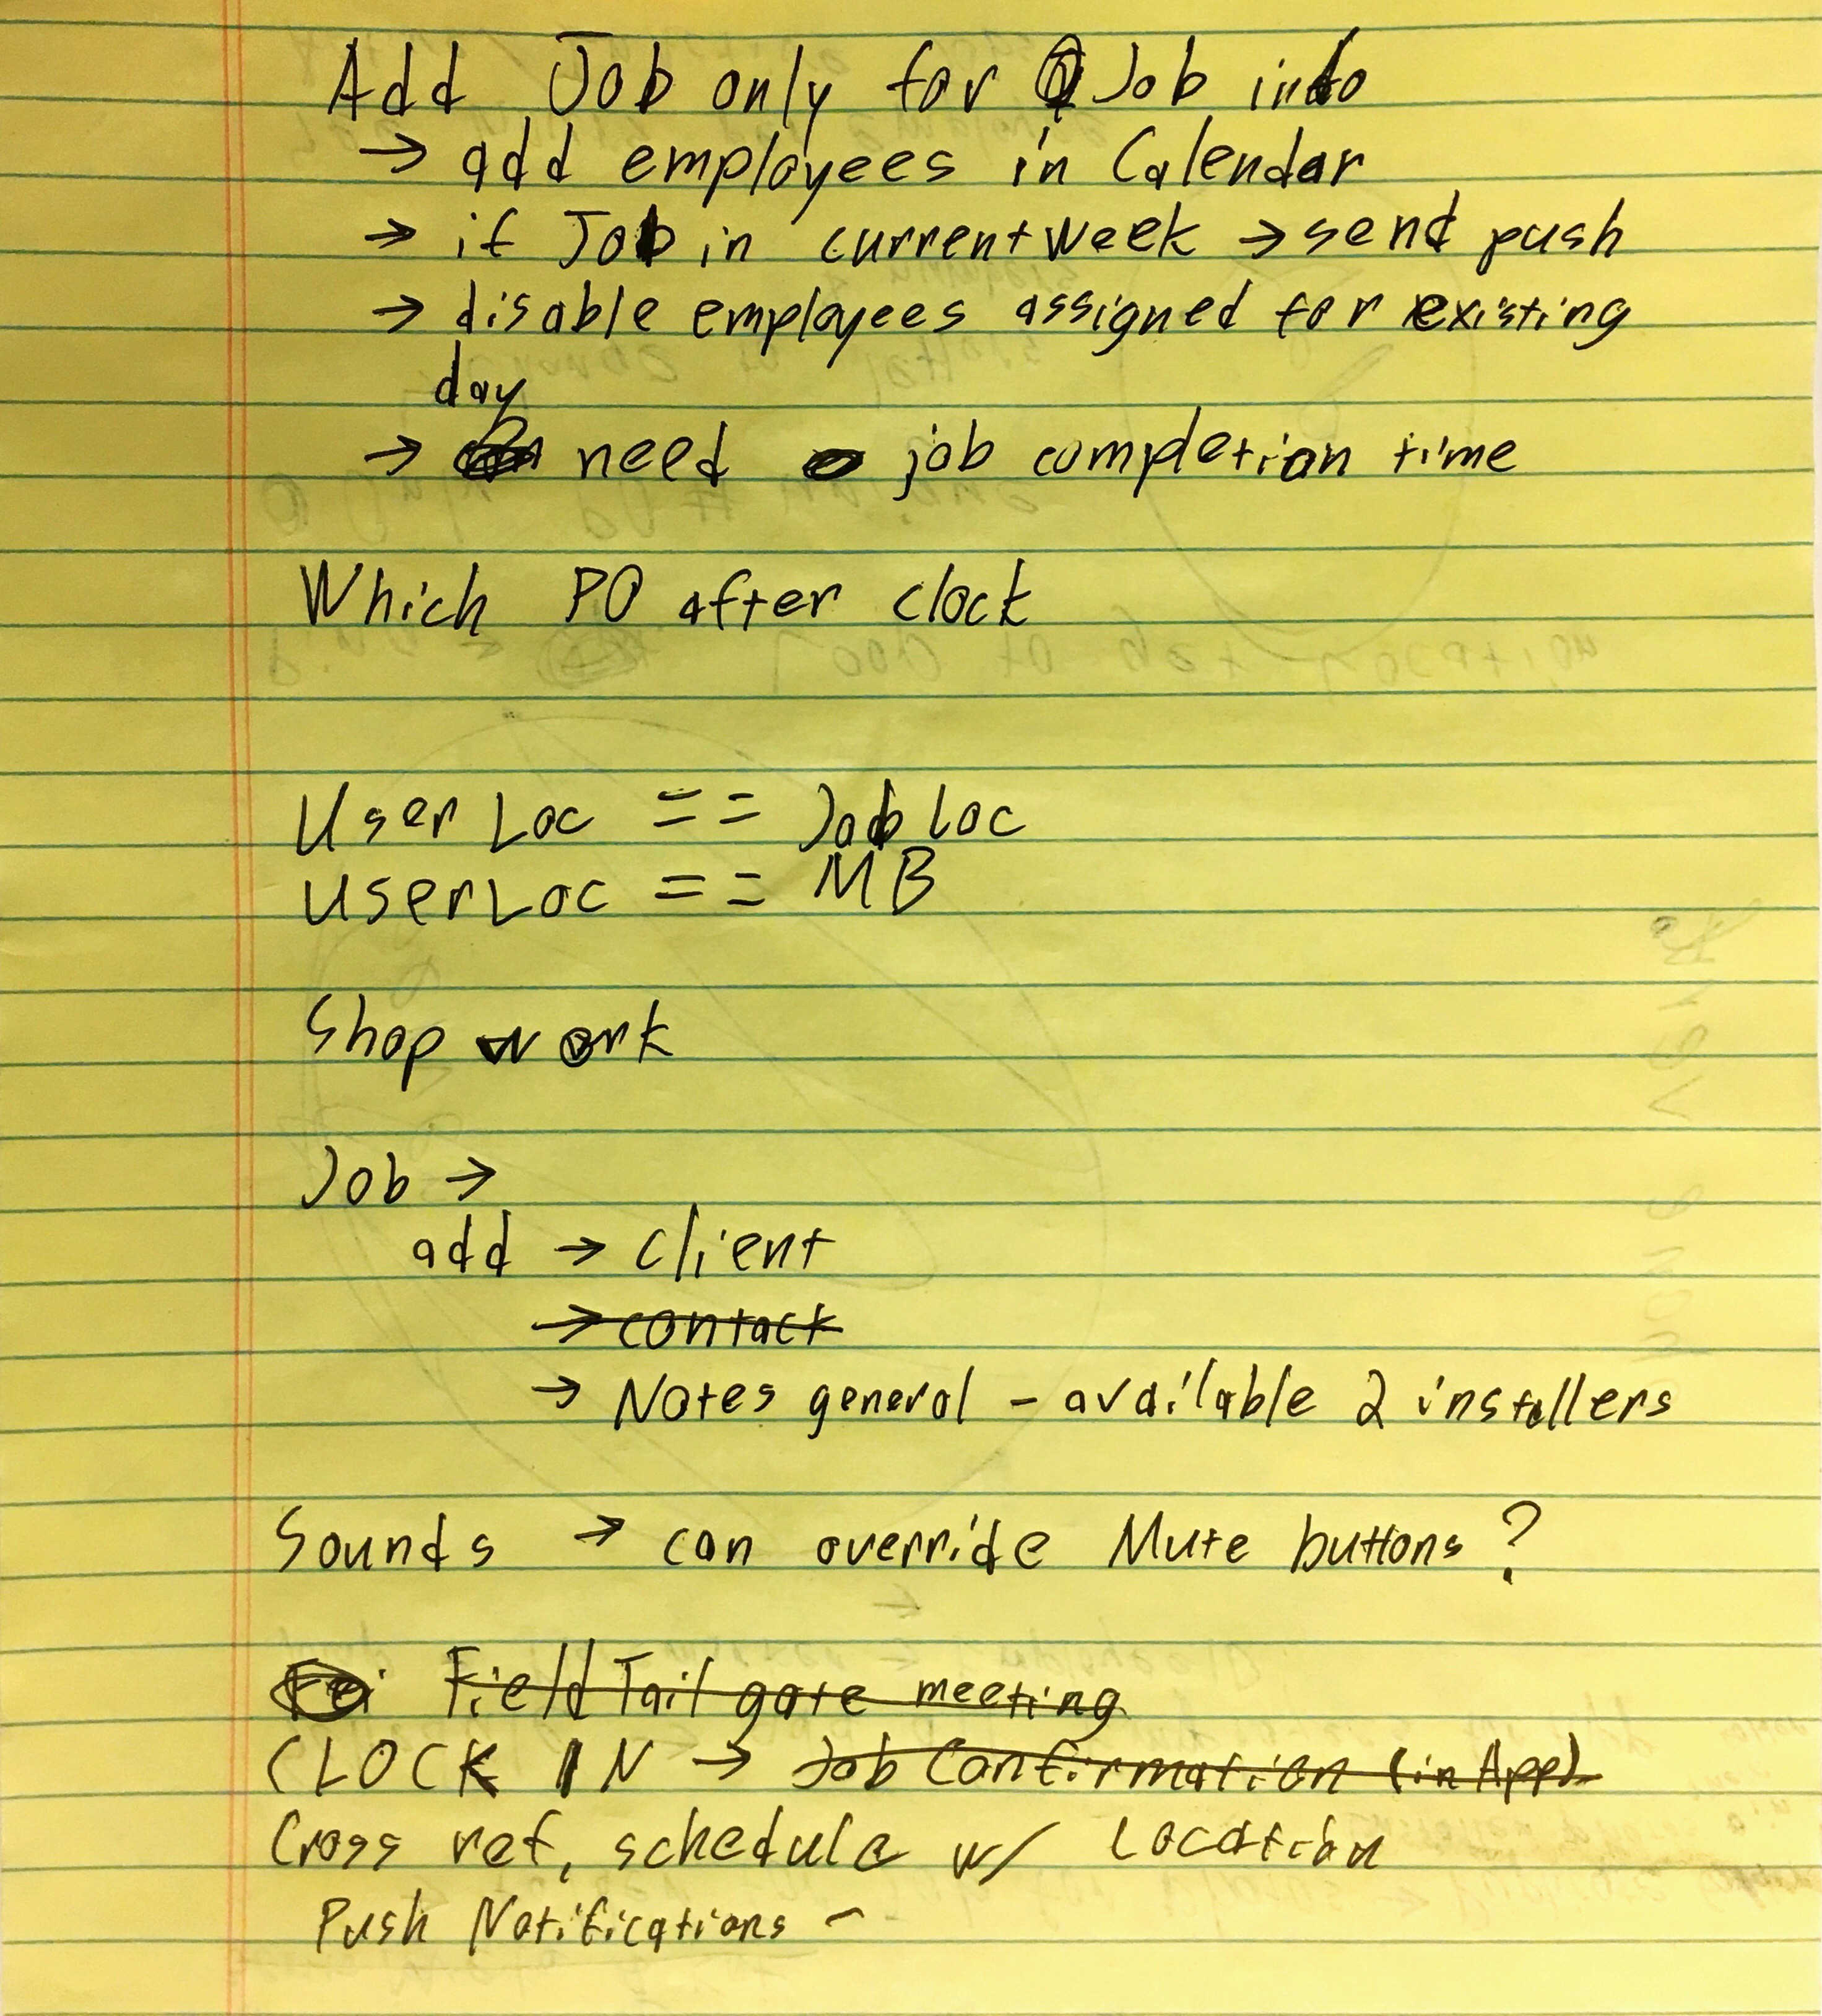 Add Job only for Job info
→ add employees in Calendar
→ if Job in current week → send push
→ disable employees assigned for existing
day
→ need job completion time
Which PO after clock
User Loc == Job Loc
User Loc == MB
Shop work
Job →
add → client
→ contact
→ Notes general - available 2 installers
Sounds → can override Mute buttons?
Field Tail gate meeting
CLOCK IN → Job Confirmation (in App)
Cross ref, schedule w/ Location
Push Notifications -